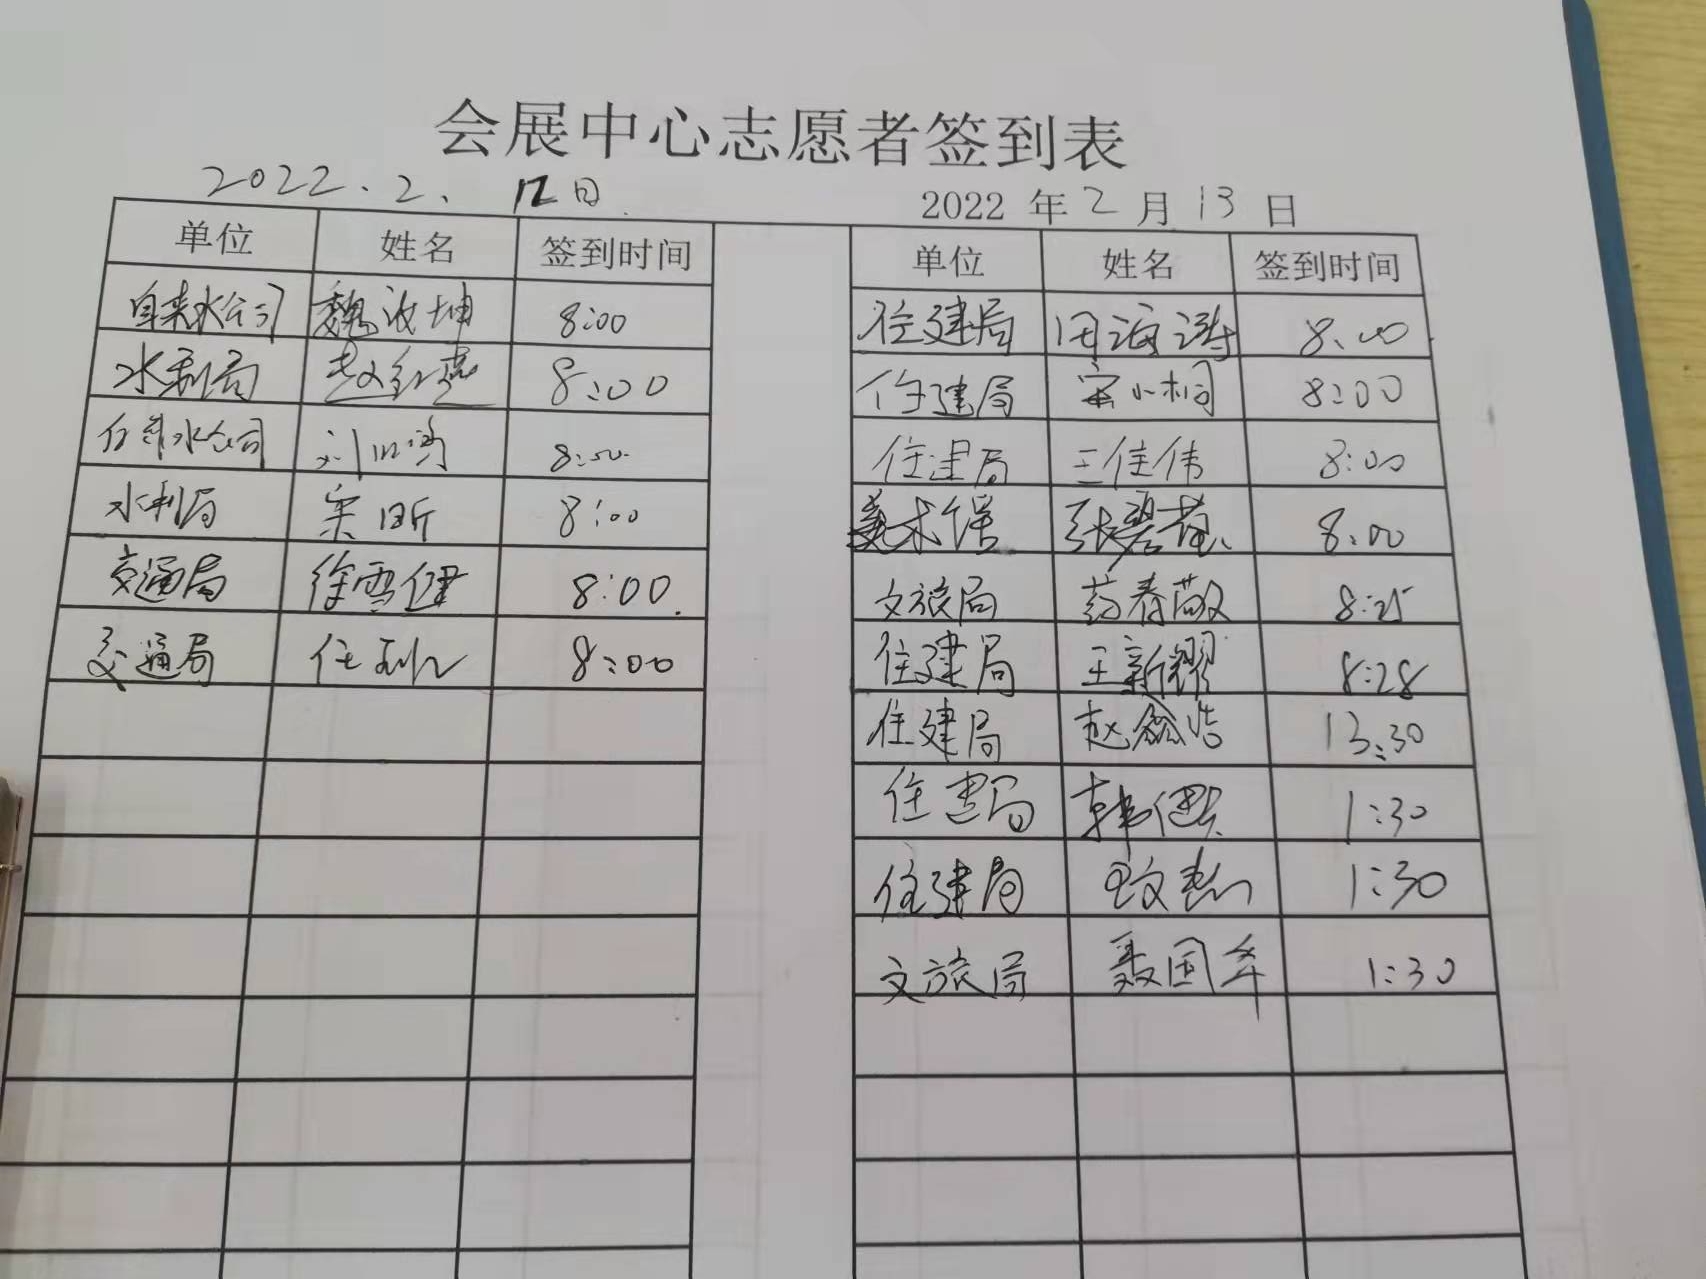 会展中心志愿者签到表
2022.2.12日
单位 姓名 签到时间
自来水公司 魏波坤 8:00
水利局 赵红燕 8:00
自来水公司 刘 8:00
水利局 宋昕 8:00
交通局 徐雪健 8:00.
交通局 任 8:00
2022 年 2 月 13 日
单位 姓名 签到时间
住建局 周海涛 8:00
住建局 小桐 8:00
住建局 王佳伟 8:00
美术馆 张碧 8:00
文旅局 药春 8:25
住建局 王新 8:28
住建局 赵鑫浩 13:30
住建局 韩 1:30
住建局 1:30
文旅局 聂国华 1:30